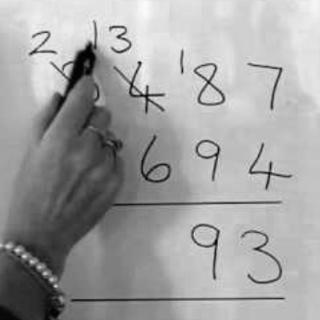 2 13
4 187
694
93